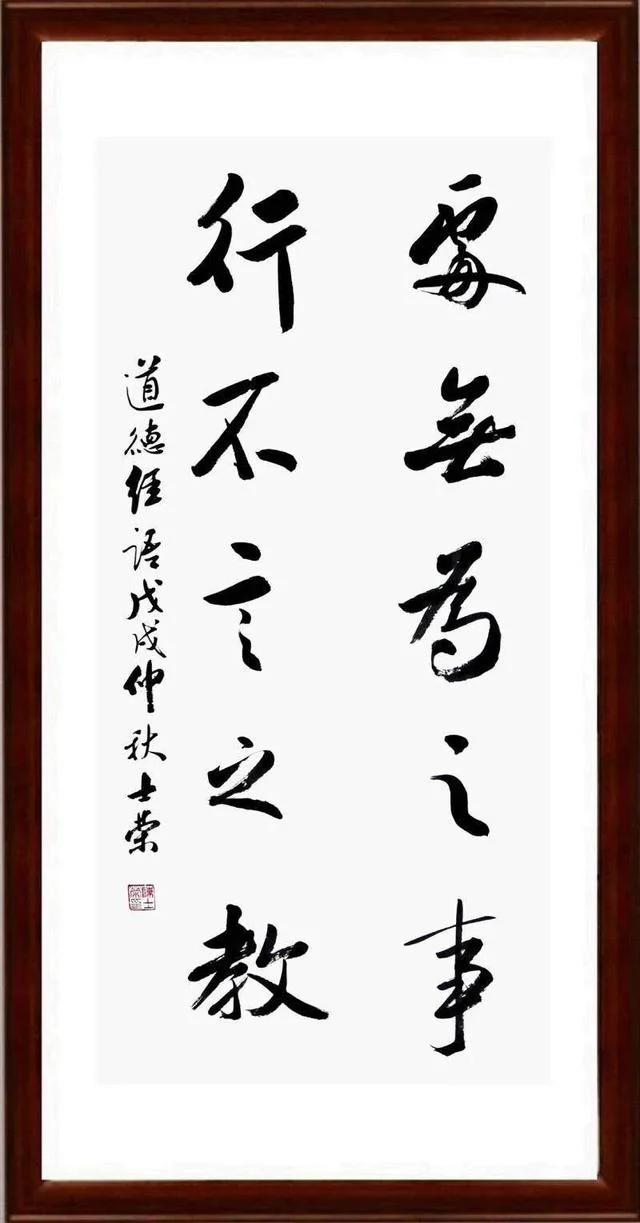 處無為之事
行不言之教
道德經語戊戌仲秋士榮